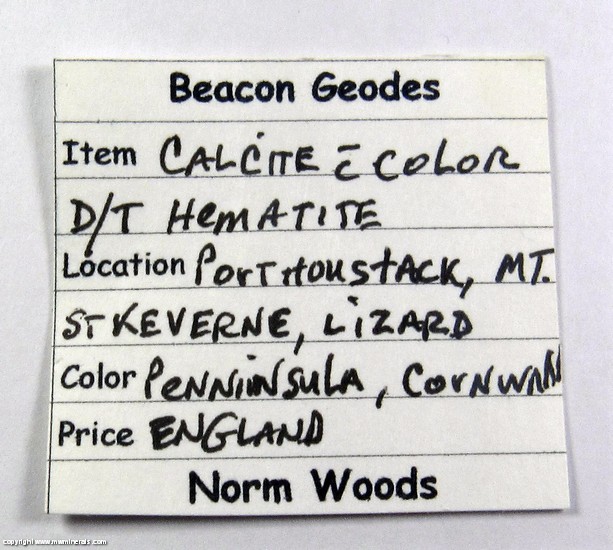 Beacon Geodes
Item CALCITE c̄ COLOR
D/T HEMATITE
Location PORTHOUSTACK, MT.
ST KEVERNE, LIZARD
Color PENNIINSULA, CORNWALL
Price ENGLAND
Norm Woods
copyright www.mwminerals.com